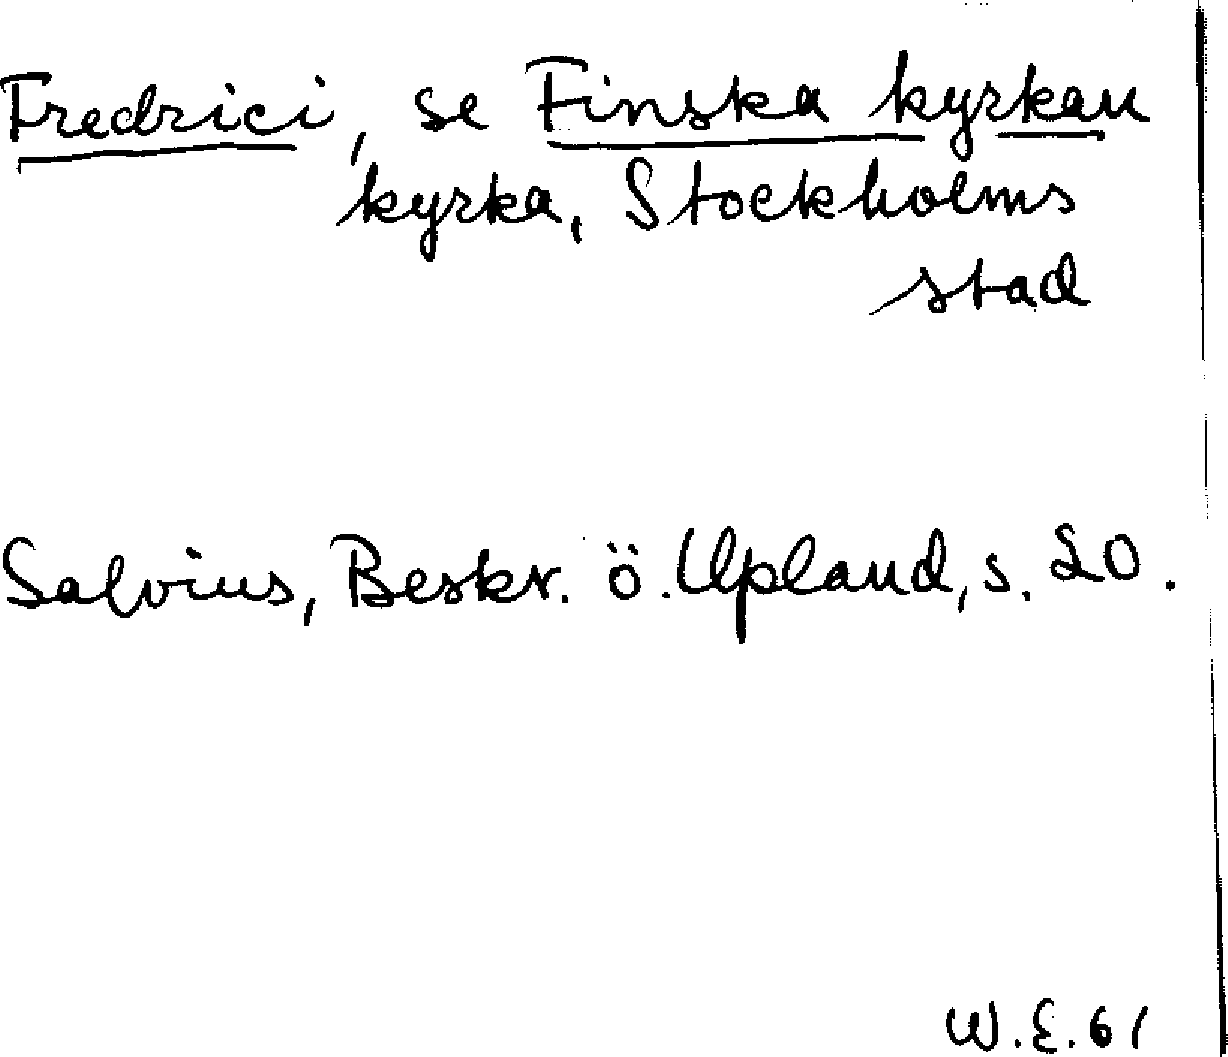 Fredrici, se Finska kyrkan
kyrka, Stockholms
stad
Salvius, Beskr. ö. Upland, s. 20.
W.E. 61